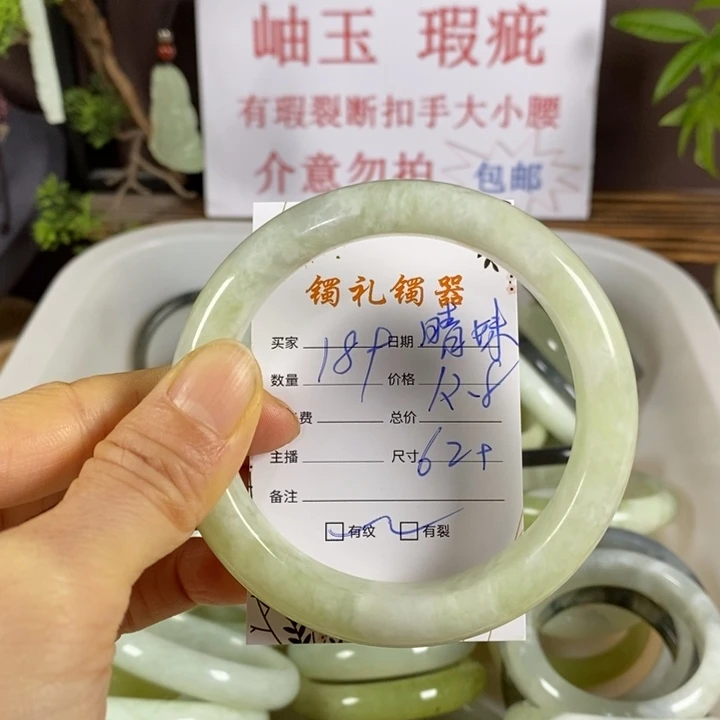 岫玉 瑕疵
有瑕裂断扣手大小腰
介意勿拍 包邮
镯礼镯器
买家 日期 晴妹
数量 189 价格 12-8
费 总价
主播 尺寸 62+
备注
有纹 有裂